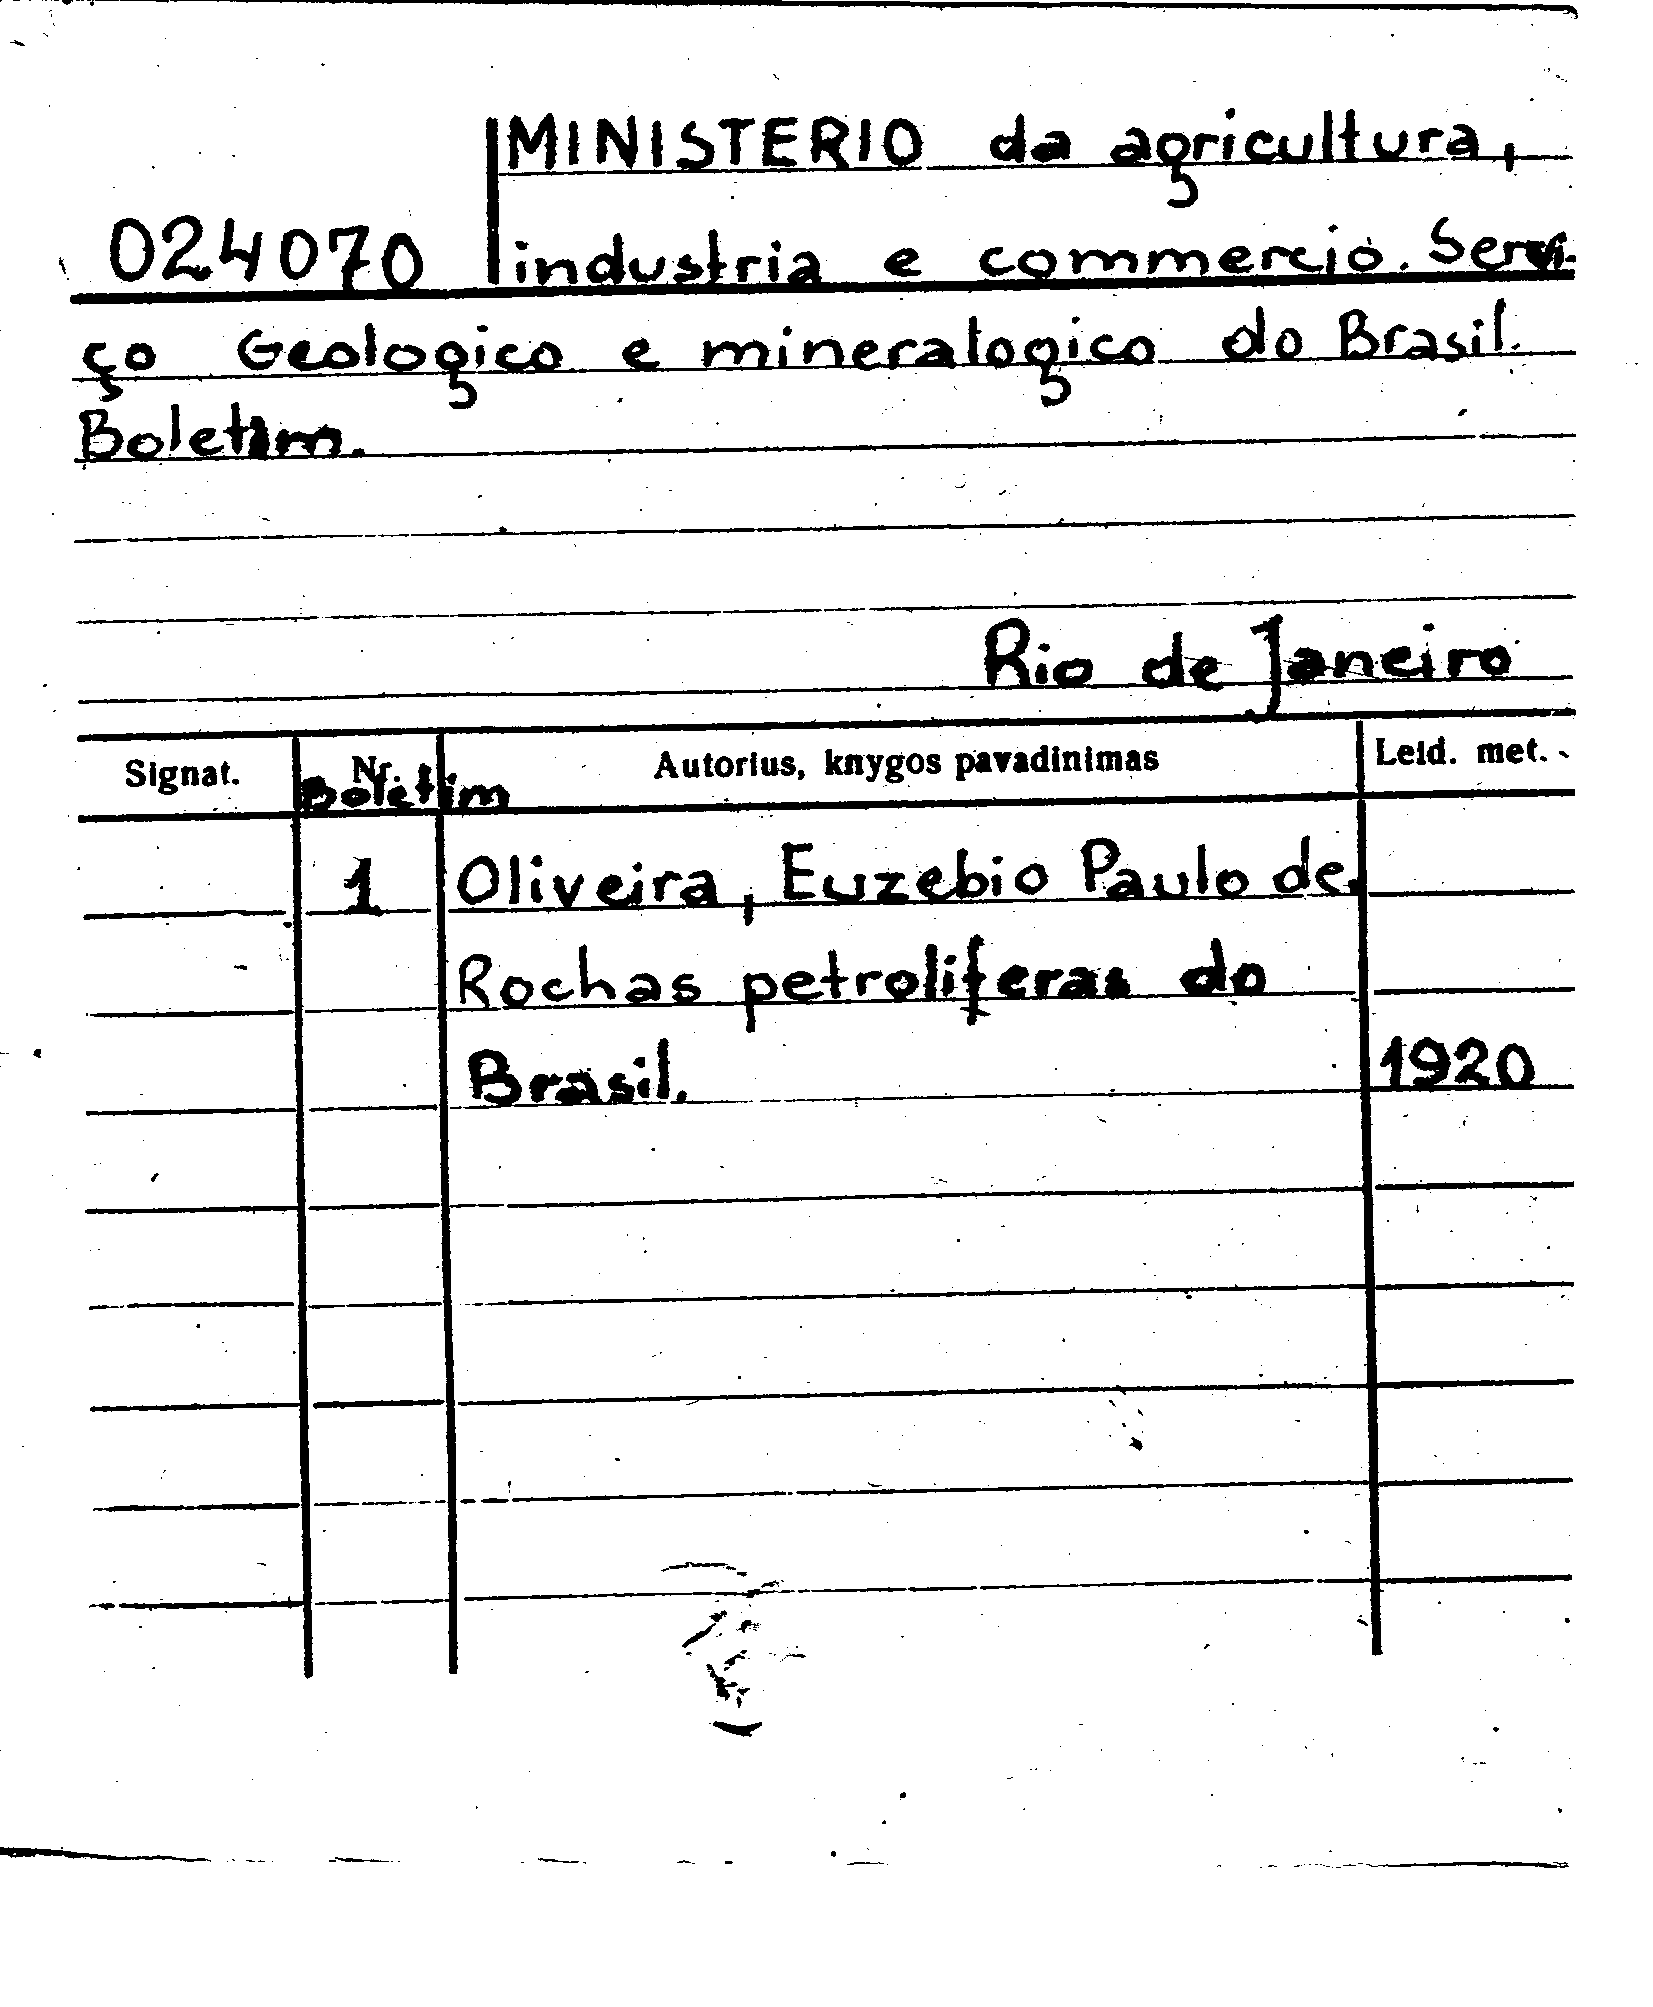 MINISTERIO da agricultura,
024070 industria e commercio. Servi-
ço Geologico e mineralogico do Brasil.
Boletim.
Rio de Janeiro
Signat. Nr. Autorius, knygos pavadinimas Leid. met.
Boletim
1 Oliveira, Euzebio Paulo de.
Rochas petroliferas do
Brasil. 1920